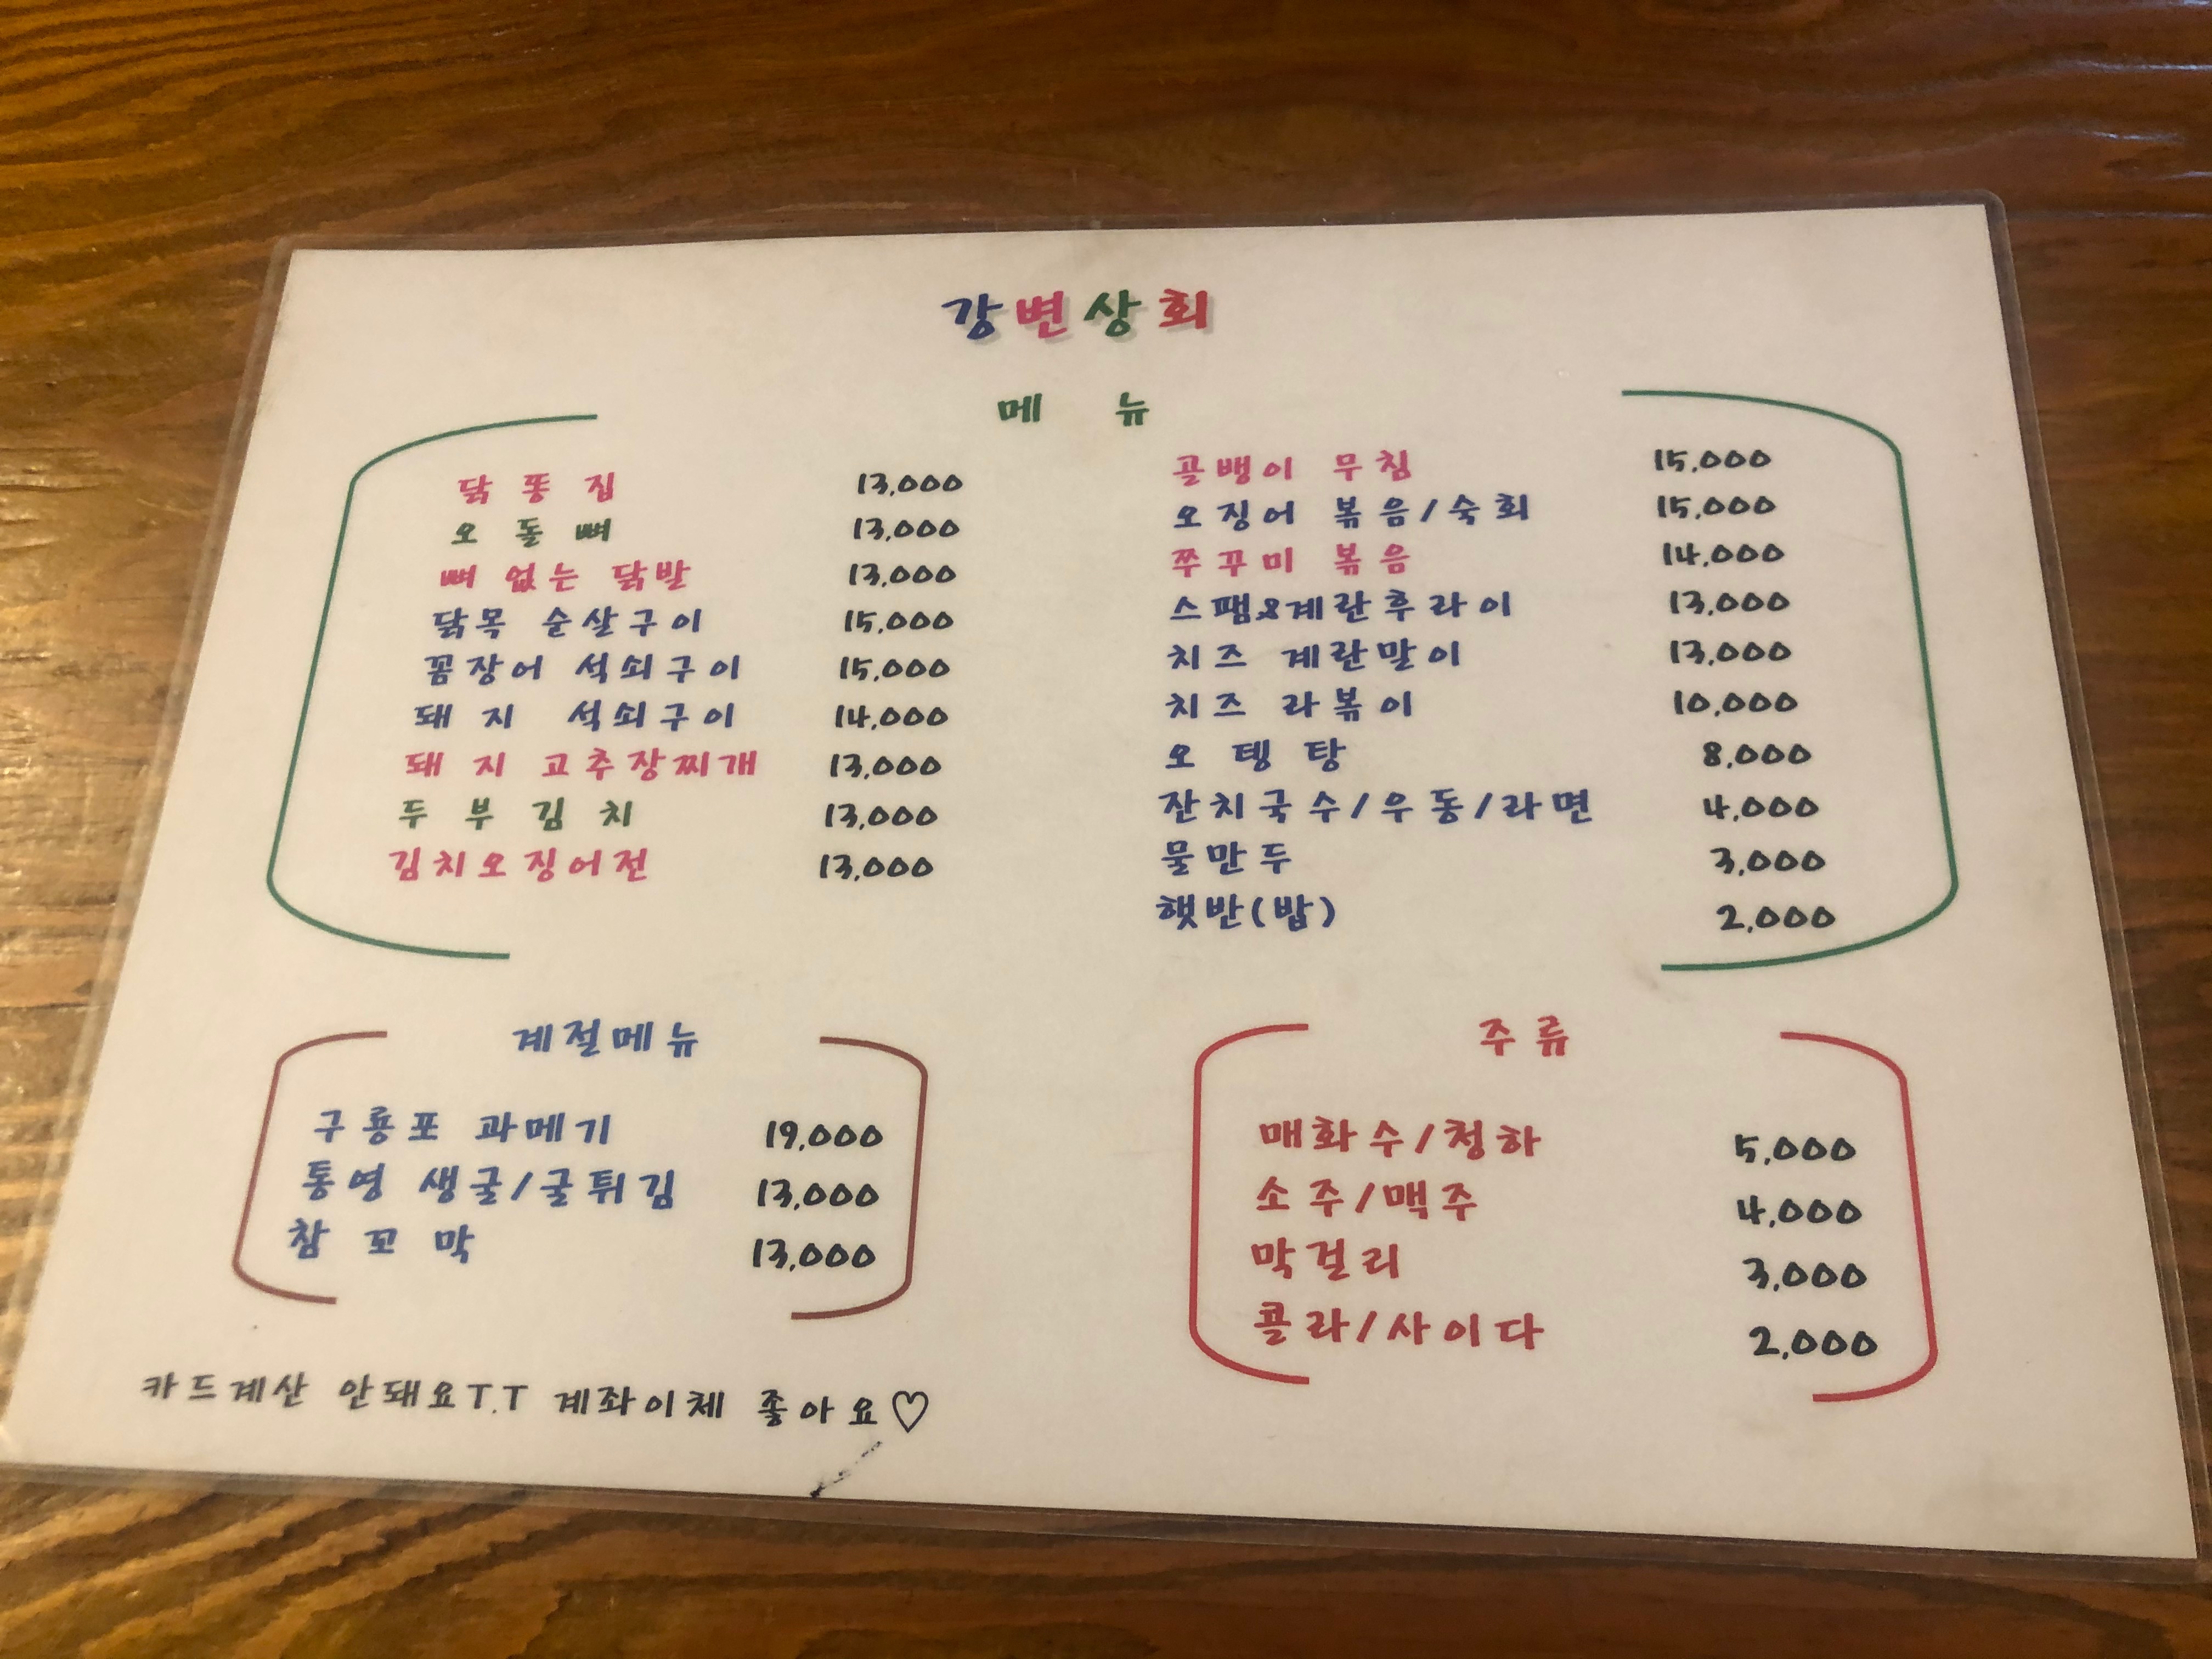 강변상회
메 뉴
닭 똥 집 13,000
오 돌 뼈 13,000
뼈 없는 닭발 13,000
닭목 순살구이 15,000
꼼장어 석쇠구이 15,000
돼 지 석쇠구이 14,000
돼 지 고추장찌개 13,000
두 부 김 치 13,000
김치오징어전 13,000
골뱅이 무침 15,000
오징어 볶음/숙회 15,000
쭈꾸미 볶음 14,000
스팸&계란후라이 13,000
치즈 계란말이 13,000
치즈 라볶이 10,000
오 뎅 탕 8,000
잔치국수/우동/라면 4,000
물만두 3,000
햇반(밥) 2,000
계절메뉴
구룡포 과메기 19,000
통영 생굴/굴튀김 13,000
참 꼬 막 13,000
주류
매화수/청하 5,000
소주/맥주 4,000
막걸리 3,000
콜라/사이다 2,000
카드계산 안돼요T.T 계좌이체 좋아요♡